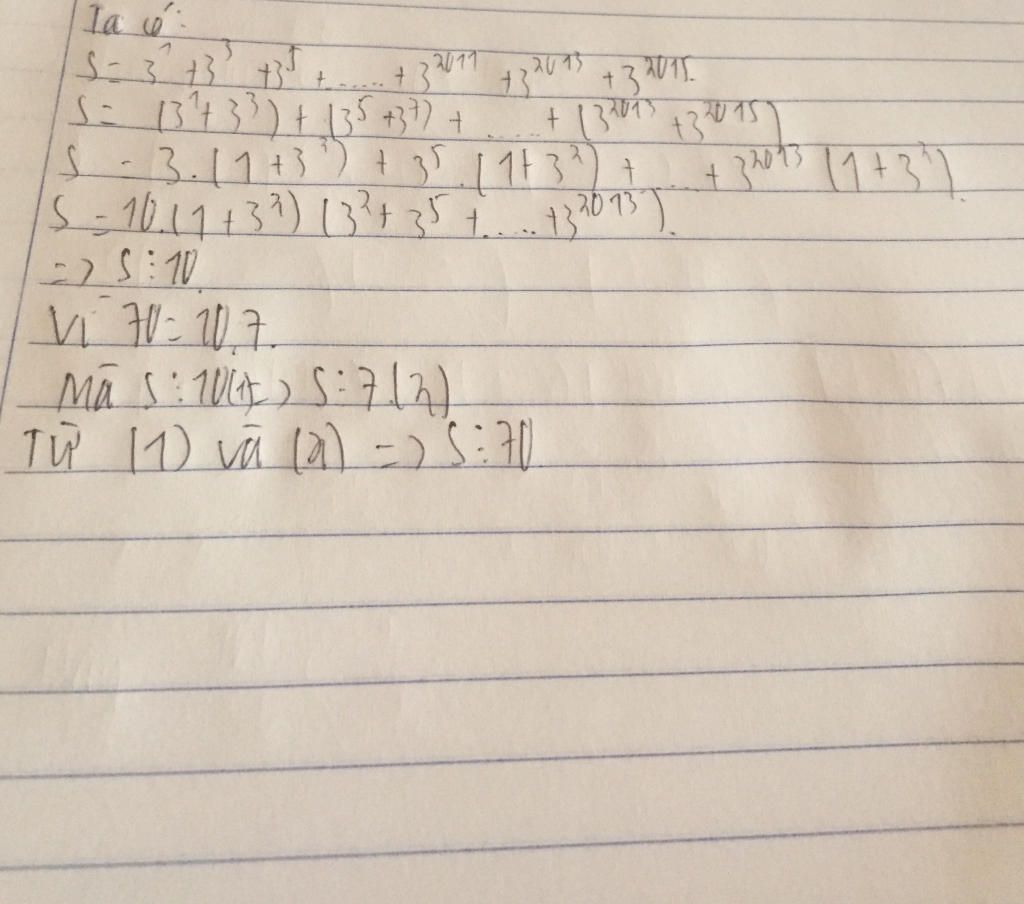 Ta có:
S = 3¹ + 3³ + 3⁵ + ...... + 3²⁰¹¹ + 3²⁰¹³ + 3²⁰¹⁵.
S = (3¹ + 3³) + (3⁵ + 3⁷) + ...... + (3²⁰¹³ + 3²⁰¹⁵)
S = 3.(1 + 3²) + 3⁵.(1 + 3²) + ... + 3²⁰¹³ (1 + 3²).
S = 10.(1 + 3²) (3² + 3⁵ + ..... + 3²⁰¹³).
=> S ⋮ 10.
Vì 70 = 10.7.
Mà S ⋮ 10(1) => S ⋮ 7.(2)
Từ (1) và (2) => S ⋮ 70